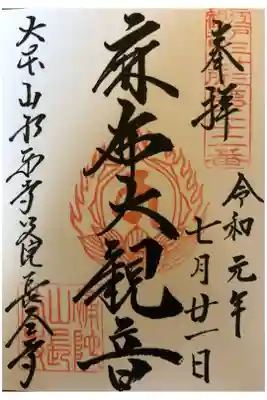 奉拝
令和元年
七月廿一日
麻布大観音
大本山永平寺別院長谷寺